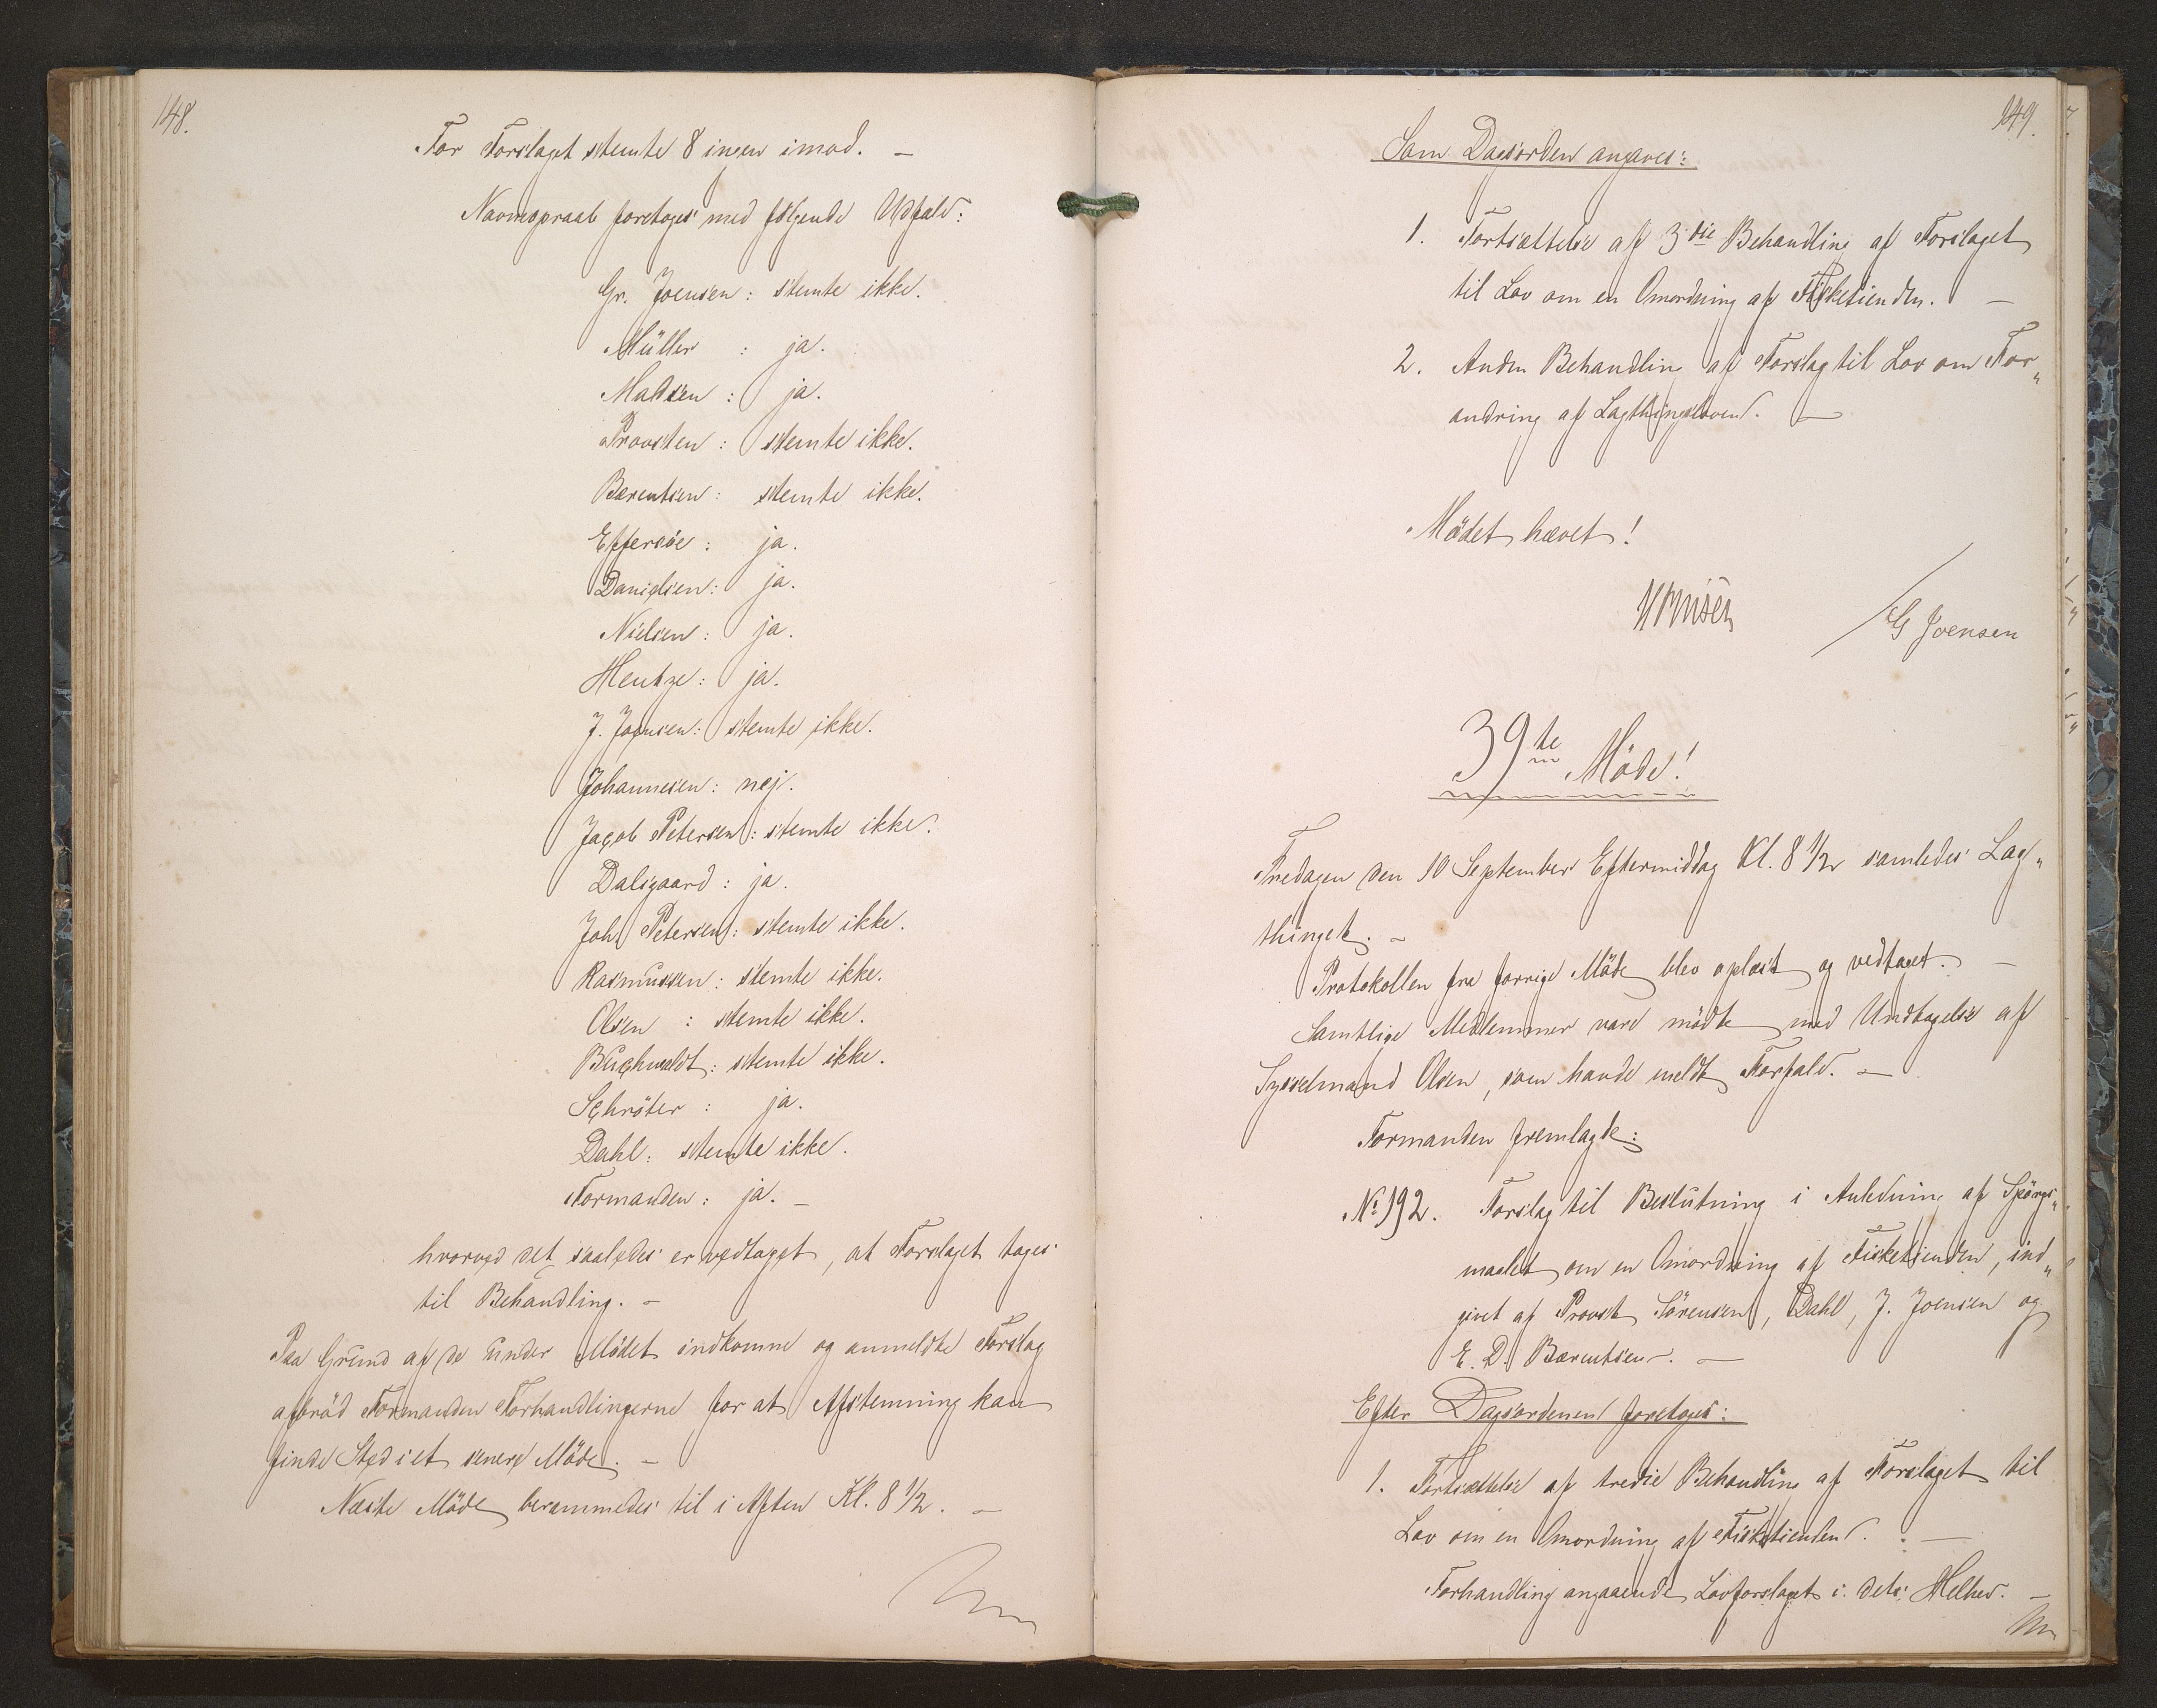 148.
For Forslaget stemte 8 ingen imod. –
Navneopraab foretoges med følgende Udfald:
Gr. Joensen: stemte ikke.
Müller : ja.
Madsen : ja.
Provsten : stemte ikke.
Bærentsen : stemte ikke.
Effersöe : ja.
Danielsen : ja.
Nielsen : ja.
Hentze : ja.
J. Joensen : stemte ikke.
Johannesen : nej.
Jacob Petersen : stemte ikke.
Dalsgaard : ja.
Joh. Petersen : stemte ikke.
Rasmussen : stemte ikke.
Olsen : stemte ikke.
Buchwaldt : stemte ikke.
Schröter : ja.
Dahl : stemte ikke.
Formanden : ja. –
hvorved det saaledes er vedtaget, at Forslaget tages
til Behandling. –
Paa Grund af de under Mödet indkomne og anmeldte Forslag
afbröd Formanden Forhandlingerne for at Afstemning kan
finde Sted i et senere Möde. –
Næste Möde berammedes til i Aften Kl. 8 1/2. –
149.
Som Dagsorden angaves:
1. Fortsættelse af 3die Behandling af Forslaget
til Lov om en Omordning af Fisketienden. –
2. Anden Behandling af Forslag til Lov om For„
andring af Lagthingsloven. –
Mödet hævet!
G Joensen
39te Möde!
Fredagen den 10 September Eftermiddag Kl. 8 1/2 samledes Lag„
thinget. –
Protokollen fra forrige Möde blev oplæst og vedtaget. –
Samtlige Medlemmer vare mödte med Undtagelse af
Sysselmand Olsen, som havde meldt Forfald. –
Formanden fremlagde:
No 192. Forslag til Beslutning i Anledning af Spörgs„
maalet om en Omordning af Fisketienden, ind„
givet af Provst Sörensen, Dahl, J. Joensen og
E. D. Bærentsen. –
Efter Dagsordenen foretoges:
1. Fortsættelse af tredie Behandling af Forslaget til
Lov om en Omordning af Fisketienden. –
Forhandling angaaende Lovforslaget i dets Helhed. –